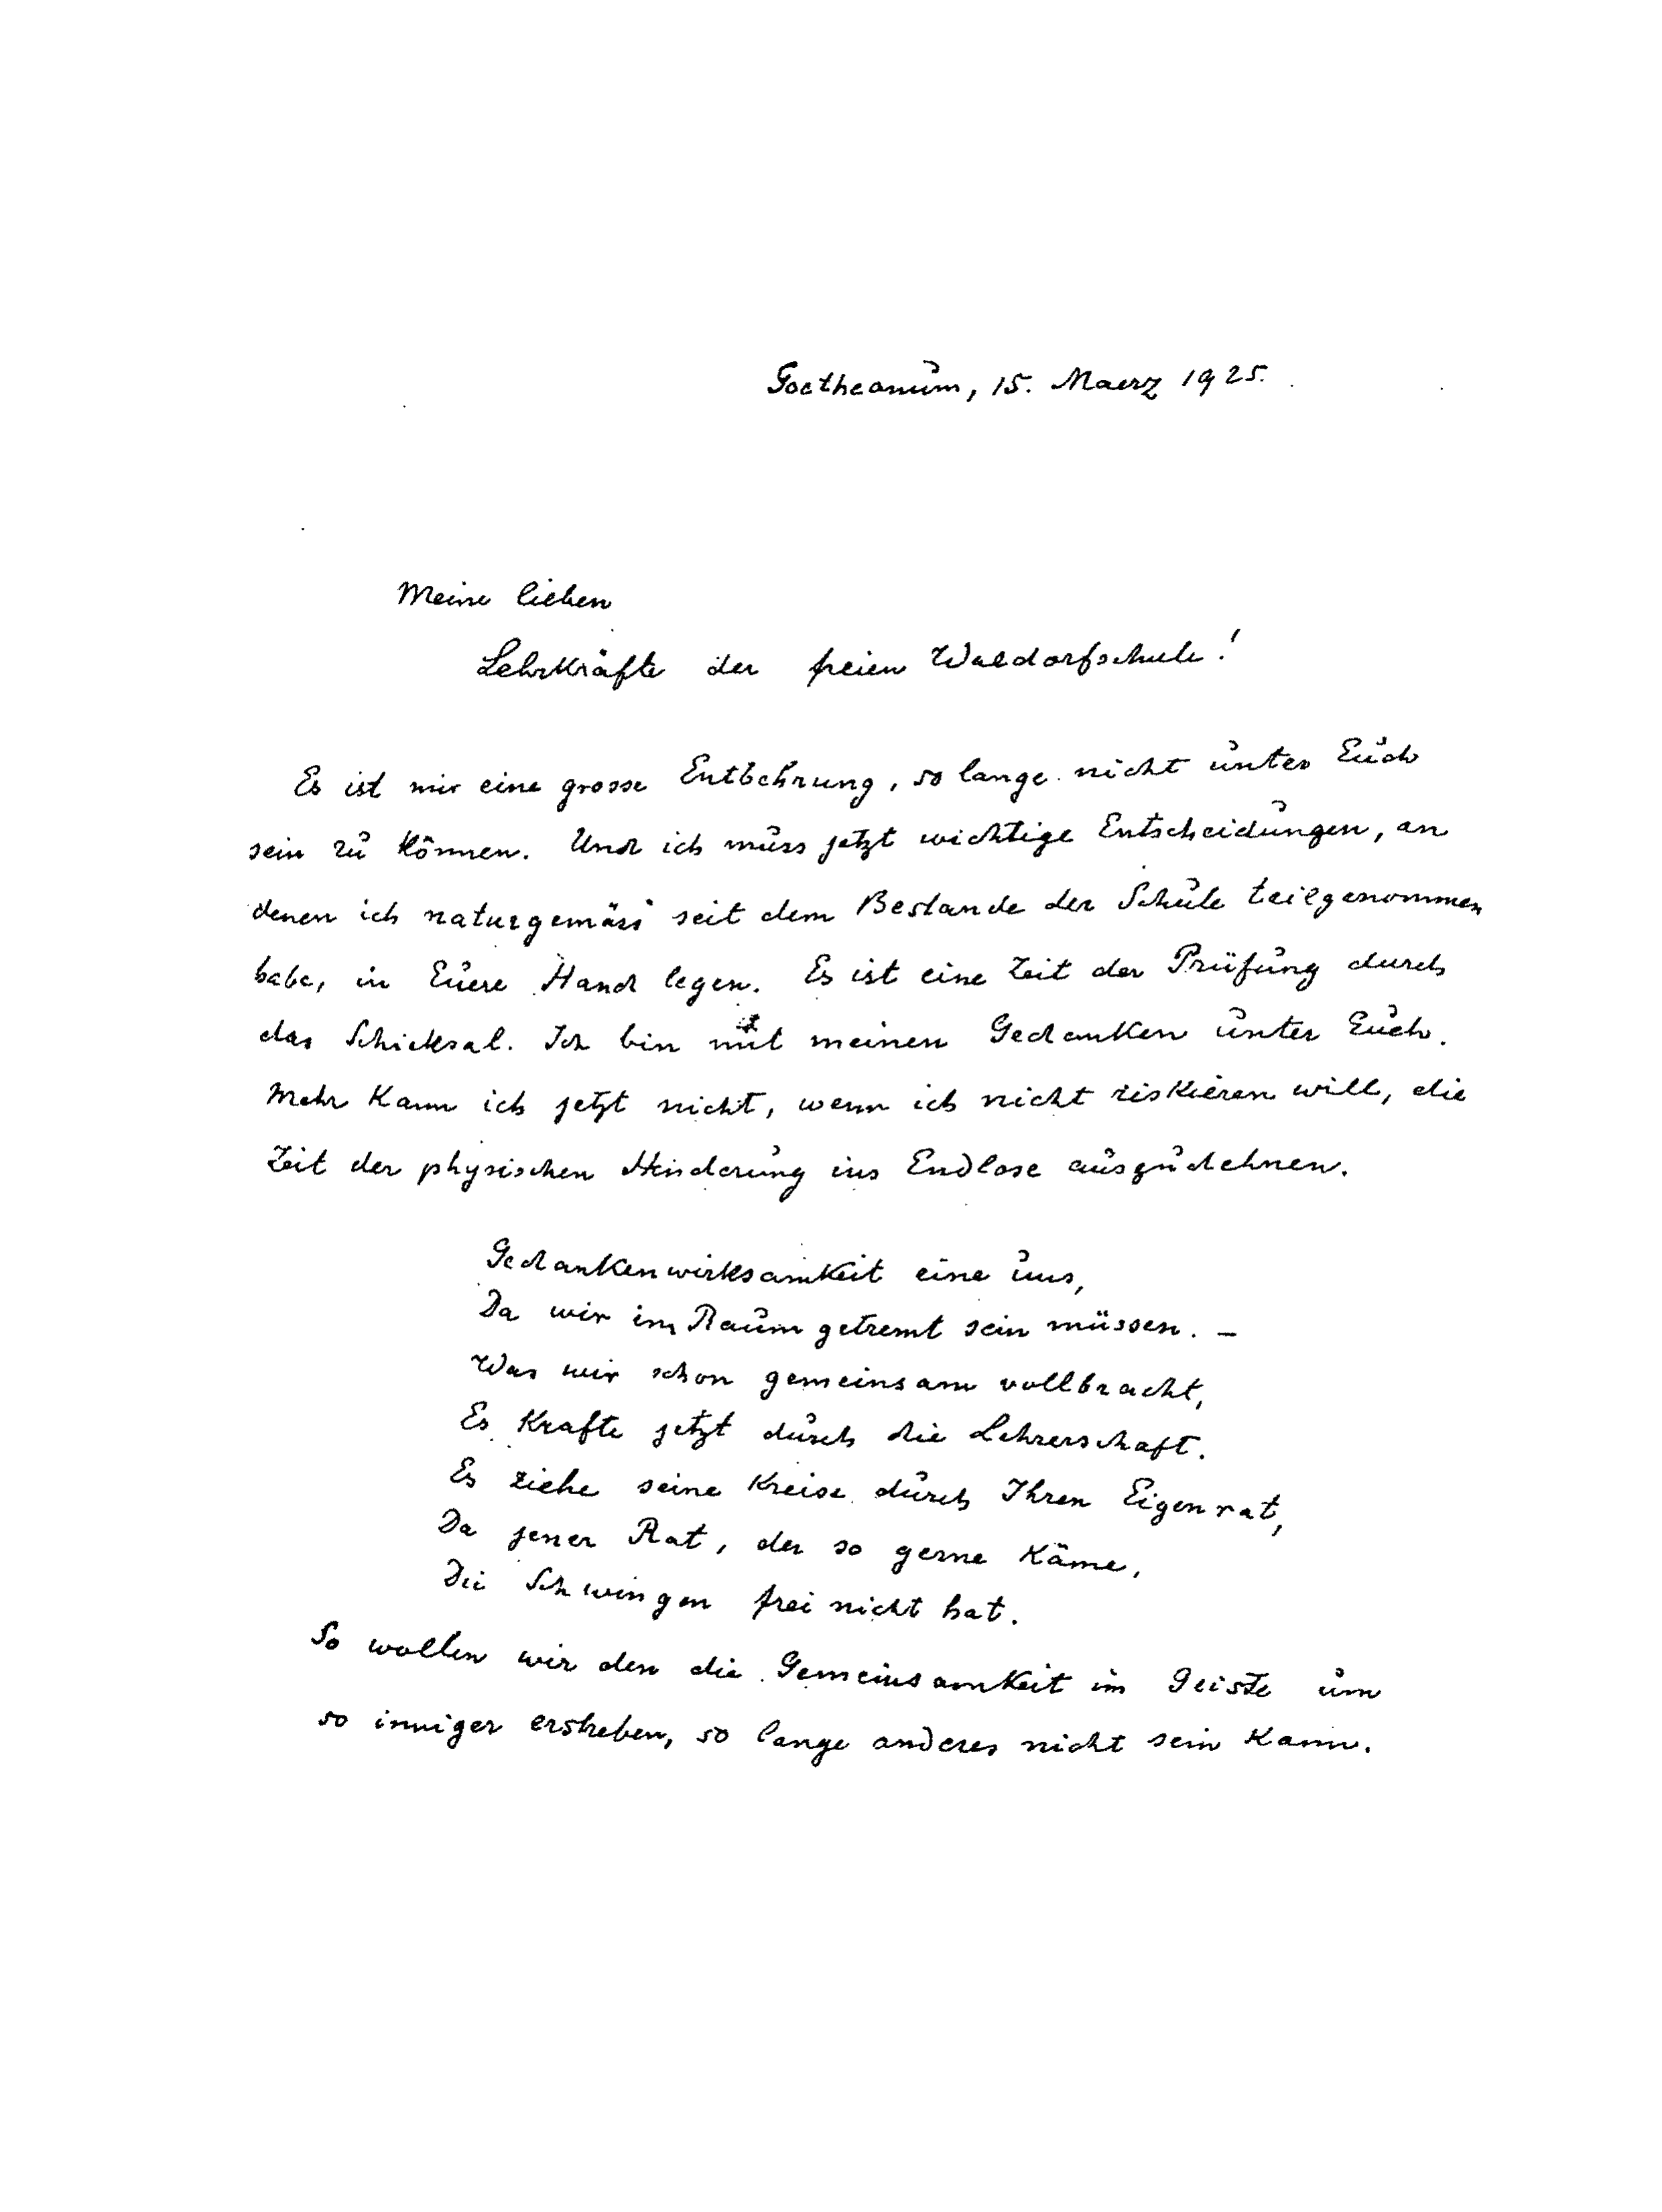 Goetheanum, 15. Maerz 1925.
Meine lieben
Lehrkräfte der freien Waldorfschule!
Es ist mir eine grosse Entbehrung, so lange nicht unter Euch
sein zu können. Und ich muss jetzt wichtige Entscheidungen, an
denen ich naturgemäss seit dem Bestande der Schule teilgenommen
habe, in Euere Hand legen. Es ist eine Zeit der Prüfung durch
das Schicksal. Ich bin mit meinen Gedanken unter Euch.
Mehr kann ich jetzt nicht, wenn ich nicht riskieren will, die
Zeit der physischen Hinderung ins Endlose auszudehnen.
Gedankenwirksamkeit eine uns,
Da wir im Raum getrennt sein müssen. –
Was wir schon gemeinsam vollbracht,
Es krafte jetzt durch die Lehrerschaft.
Es ziehe seine Kreise durch Ihren Eigenrat,
Da jener Rat, der so gerne käme,
Die Schwingen frei nicht hat.
So wollen wir den die Gemeinsamkeit im Geiste um
so inniger erstreben, so lange anderes nicht sein kann.